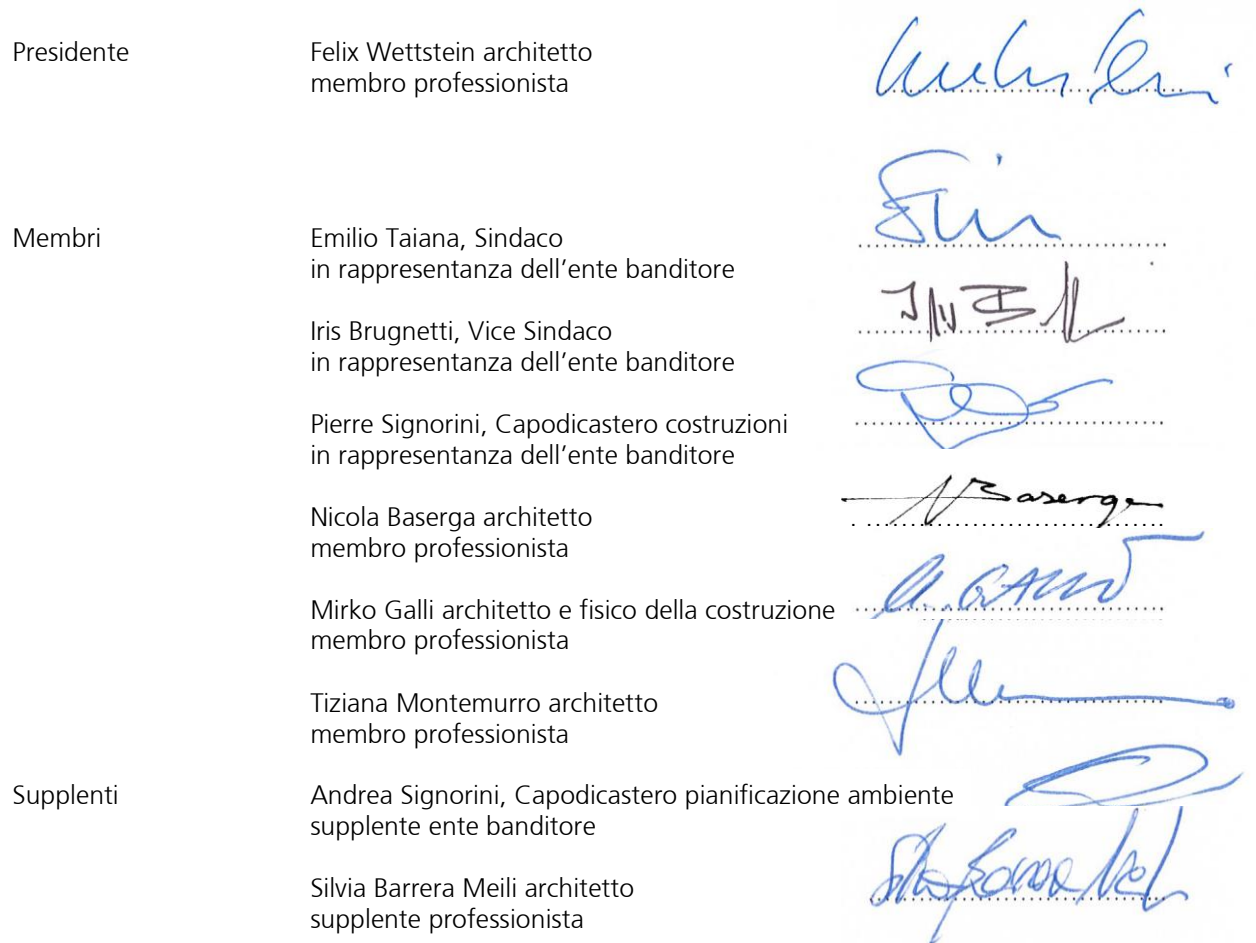 Presidente Felix Wettstein architetto
membro professionista
Membri Emilio Taiana, Sindaco
in rappresentanza dell’ente banditore
Iris Brugnetti, Vice Sindaco
in rappresentanza dell’ente banditore
Pierre Signorini, Capodicastero costruzioni
in rappresentanza dell’ente banditore
Nicola Baserga architetto
membro professionista
N Baserga
Mirko Galli architetto e fisico della costruzione
membro professionista
Tiziana Montemurro architetto
membro professionista
Supplenti Andrea Signorini, Capodicastero pianificazione ambiente
supplente ente banditore
Silvia Barrera Meili architetto
supplente professionista